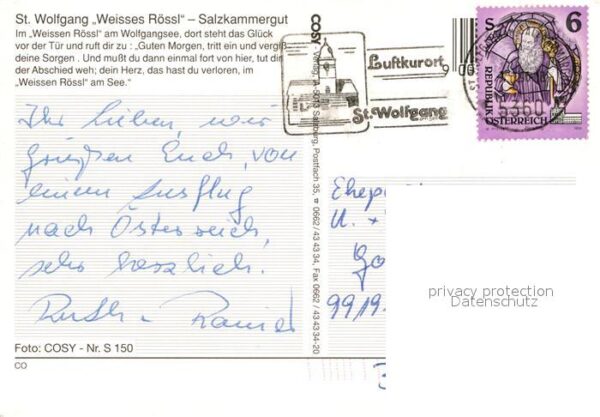 St. Wolfgang „Weisses Rössl“ – Salzkammergut
Im „Weissen Rössl“ am Wolfgangsee, dort steht das Glück
vor der Tür und ruft dir zu : „Guten Morgen, tritt ein und vergiß
deine Sorgen . Und mußt du dann einmal fort von hier, tut dir
der Abschied weh; dein Herz, das hast du verloren, im
„Weissen Rössl“ am See.“
Ihr Lieben, wir
grüßen Euch, von
einem Ausflug
nach Österreich,
sehr herzlich.
Ruth + Rainer
Foto: COSY - Nr. S 150
CO
COSY Verlag, A-5013 Salzburg, Postfach 35, ☎ 0662/43 43 34, Fax 0662/43 43 34-20
Luftkurort
St. Wolfgang
5360
S 6
REPUBLIK
ÖSTERREICH
Ehep
U. +
Go
9919
privacy protection
Datenschutz